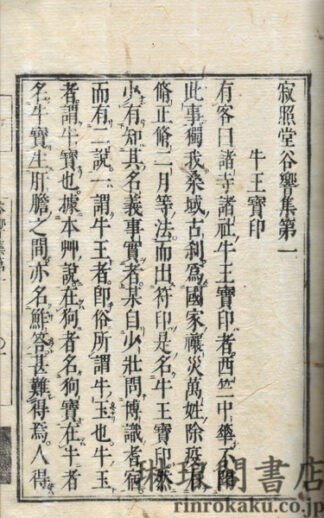 寂照堂谷響集第一
牛王寶印
有客曰諸寺諸社牛王寶印者西竺中華不聞
此事獨我桑域古刹爲國家禳災萬姓除疫有
脩正脩二月等法而出符印是名牛王寶印然
少有知其名義事實者某自少壯問博識耆宿
而有二說一謂牛王者卽俗所謂牛玉也牛玉
者謂牛寶也據本艸說在狗者名狗寶在牛者
名牛寶生肝膽之間亦名鮓荅甚難得焉人得
琳琅閣書店
rinrokaku.co.jp